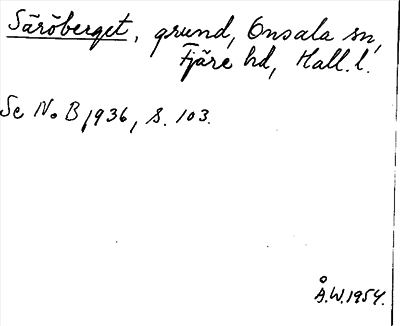 Säröberget, grund, Onsala sn,
Fjäre hd, Hall. l.
Se NoB 1936, s. 103.
Å.W. 1954.